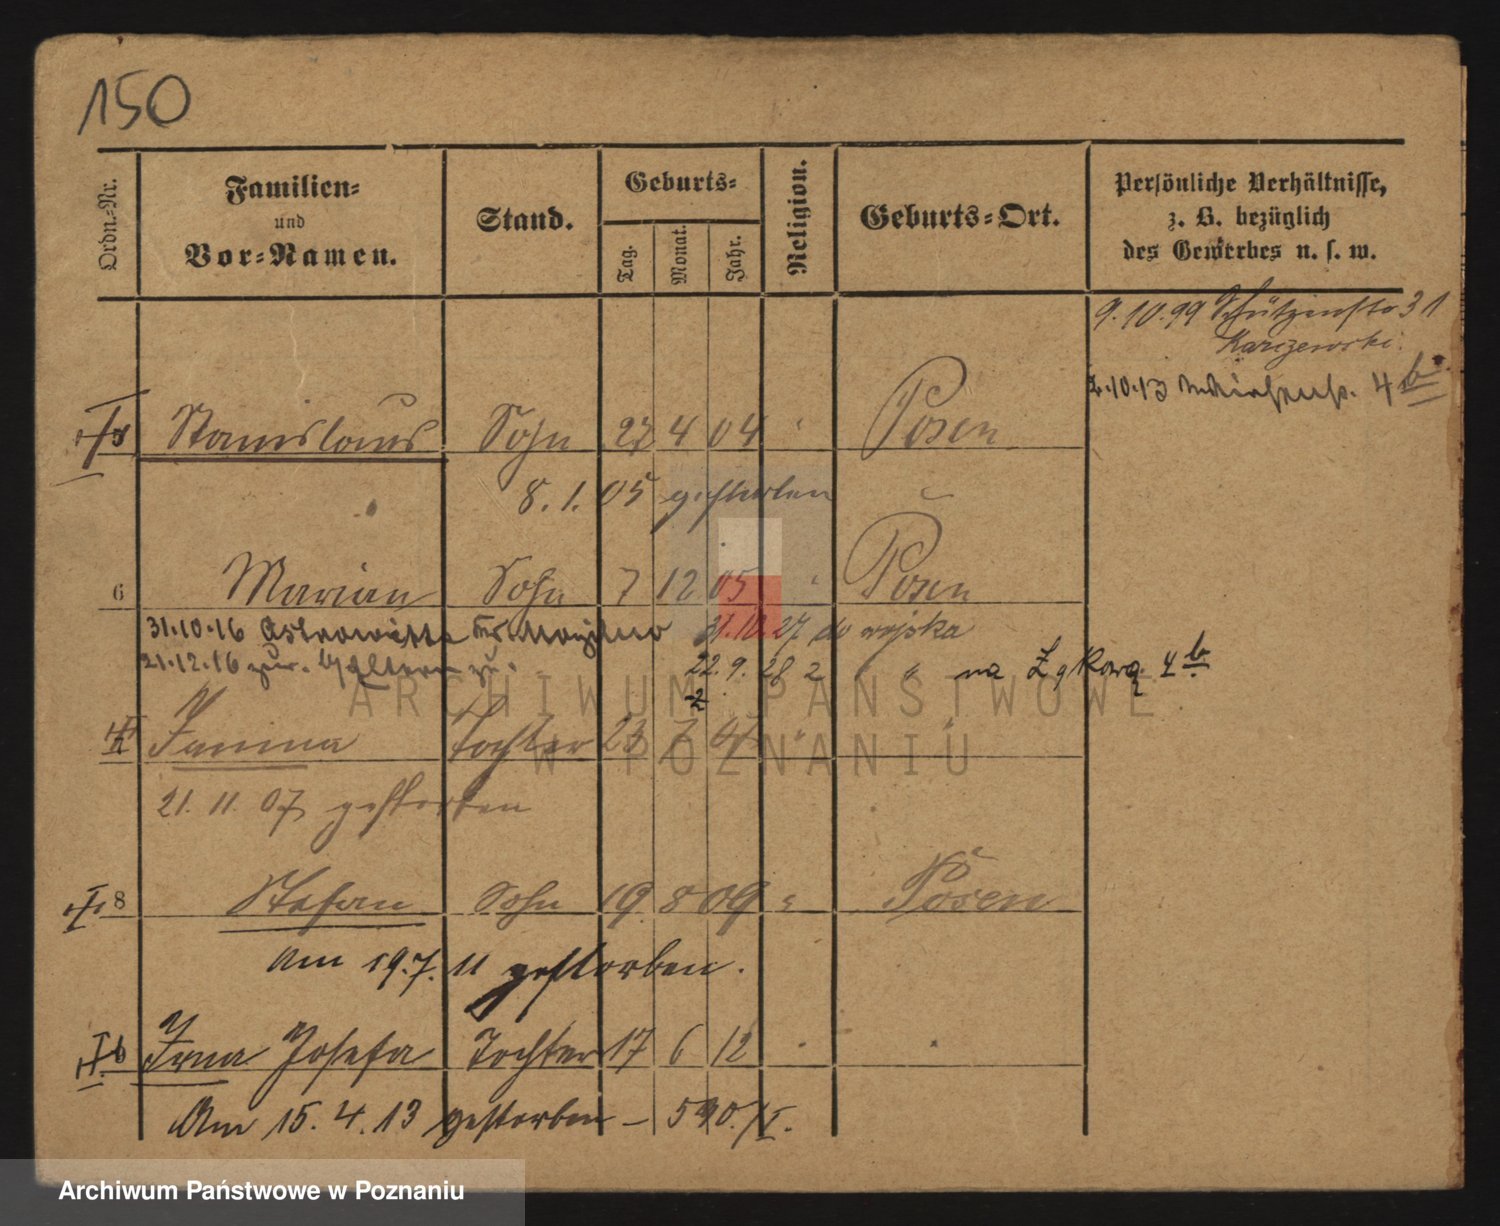 150
Ordn.-Nr.
Familien-
und
Vor-Namen.
Stand.
Geburts-
Tag.
Monat.
Jahr.
Religion.
Geburts-Ort.
Persönliche Verhältnisse,
z. B. bezüglich
des Gewerbes u. s. w.
9.10.99 Schützenstr 31
Karczewski.
2.10.13 4b
Stanislaus Sohn 27 4 04 Posen
8.1.05 gestorben
6 Marian Sohn 7 12 05 Posen
31.10.16 31.10.27 do wojska
21.12.16 zur. Eltern zu. 22.9.28 z " " na 4b
Janina Tochter 23 7 07 "
21.11.07 gestorben
8 Stefan Sohn 19 8 09 Posen
am 19.7.11 gestorben.
Irna Josefa Tochter 17 6 12
Am 15.4.13 gestorben –
ARCHIWUM PAŃSTWOWE
W POZNANIU
Archiwum Państwowe w Poznaniu